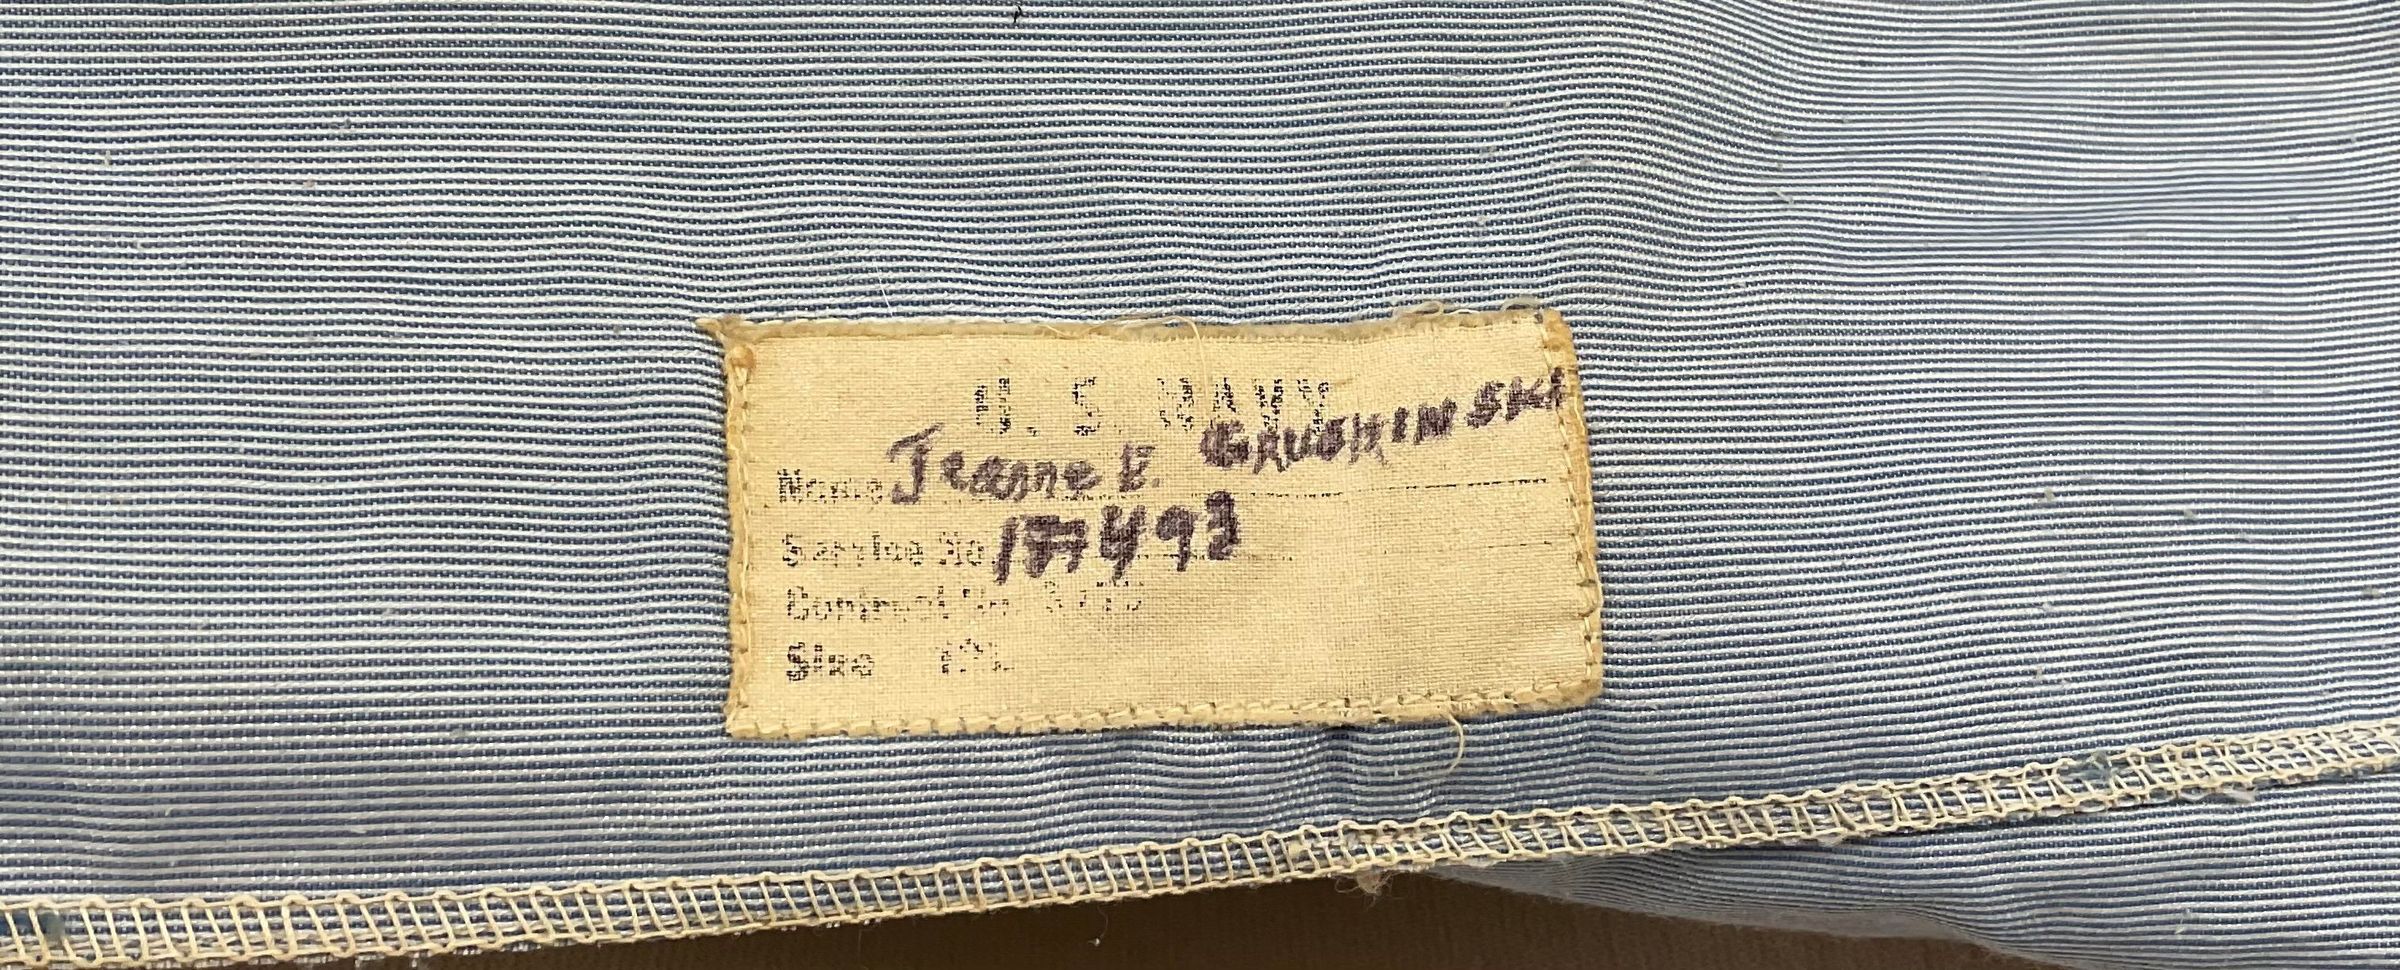 U. S. NAVY
Name Jeanne E. GRUSHINSKI
Service No
Contract No.
Size